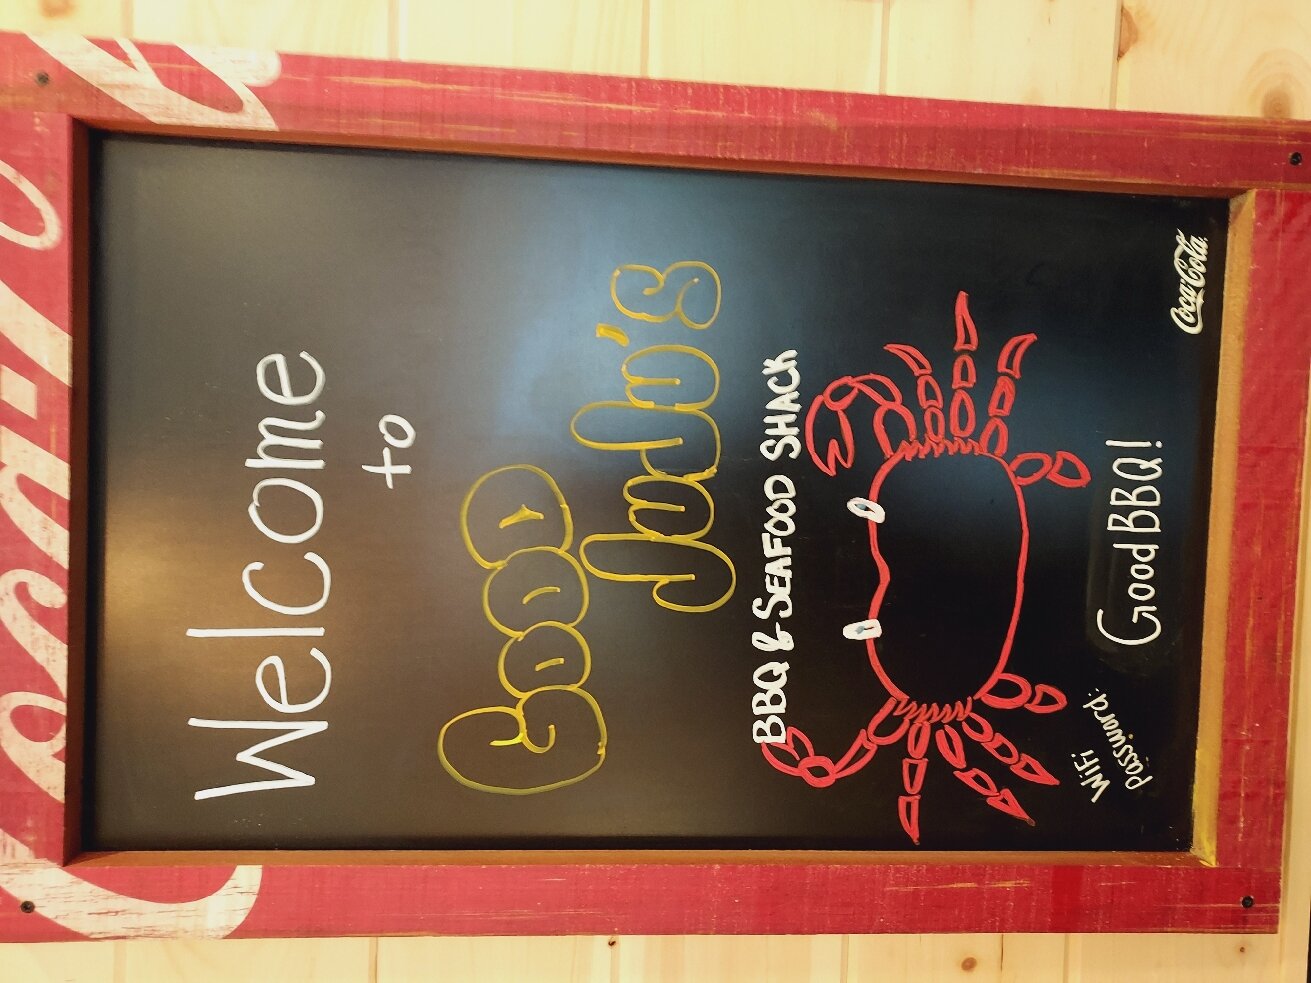 Coca-Cola
Welcome
to
GOOD
Judy's
BBQ & SEAFOOD SHACK
WiFi
Password:
GoodBBQ!
Coca-Cola